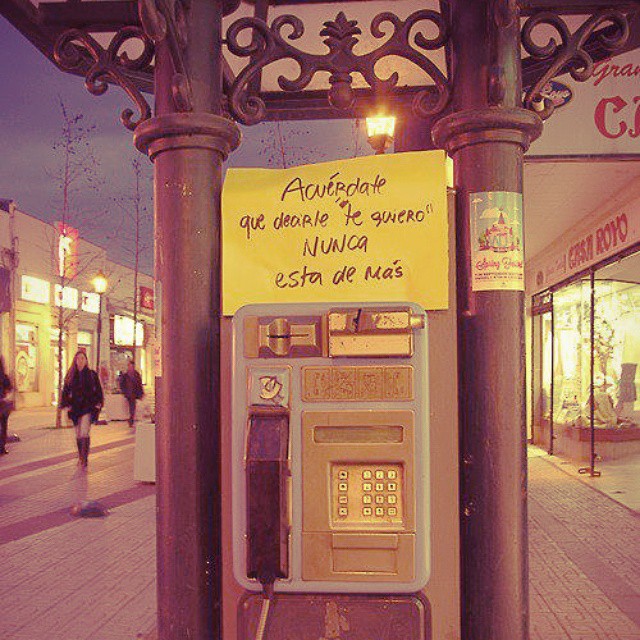 Acuérdate
que decirle "te quiero"
NUNCA
esta de más
Gran
CASA ROYO